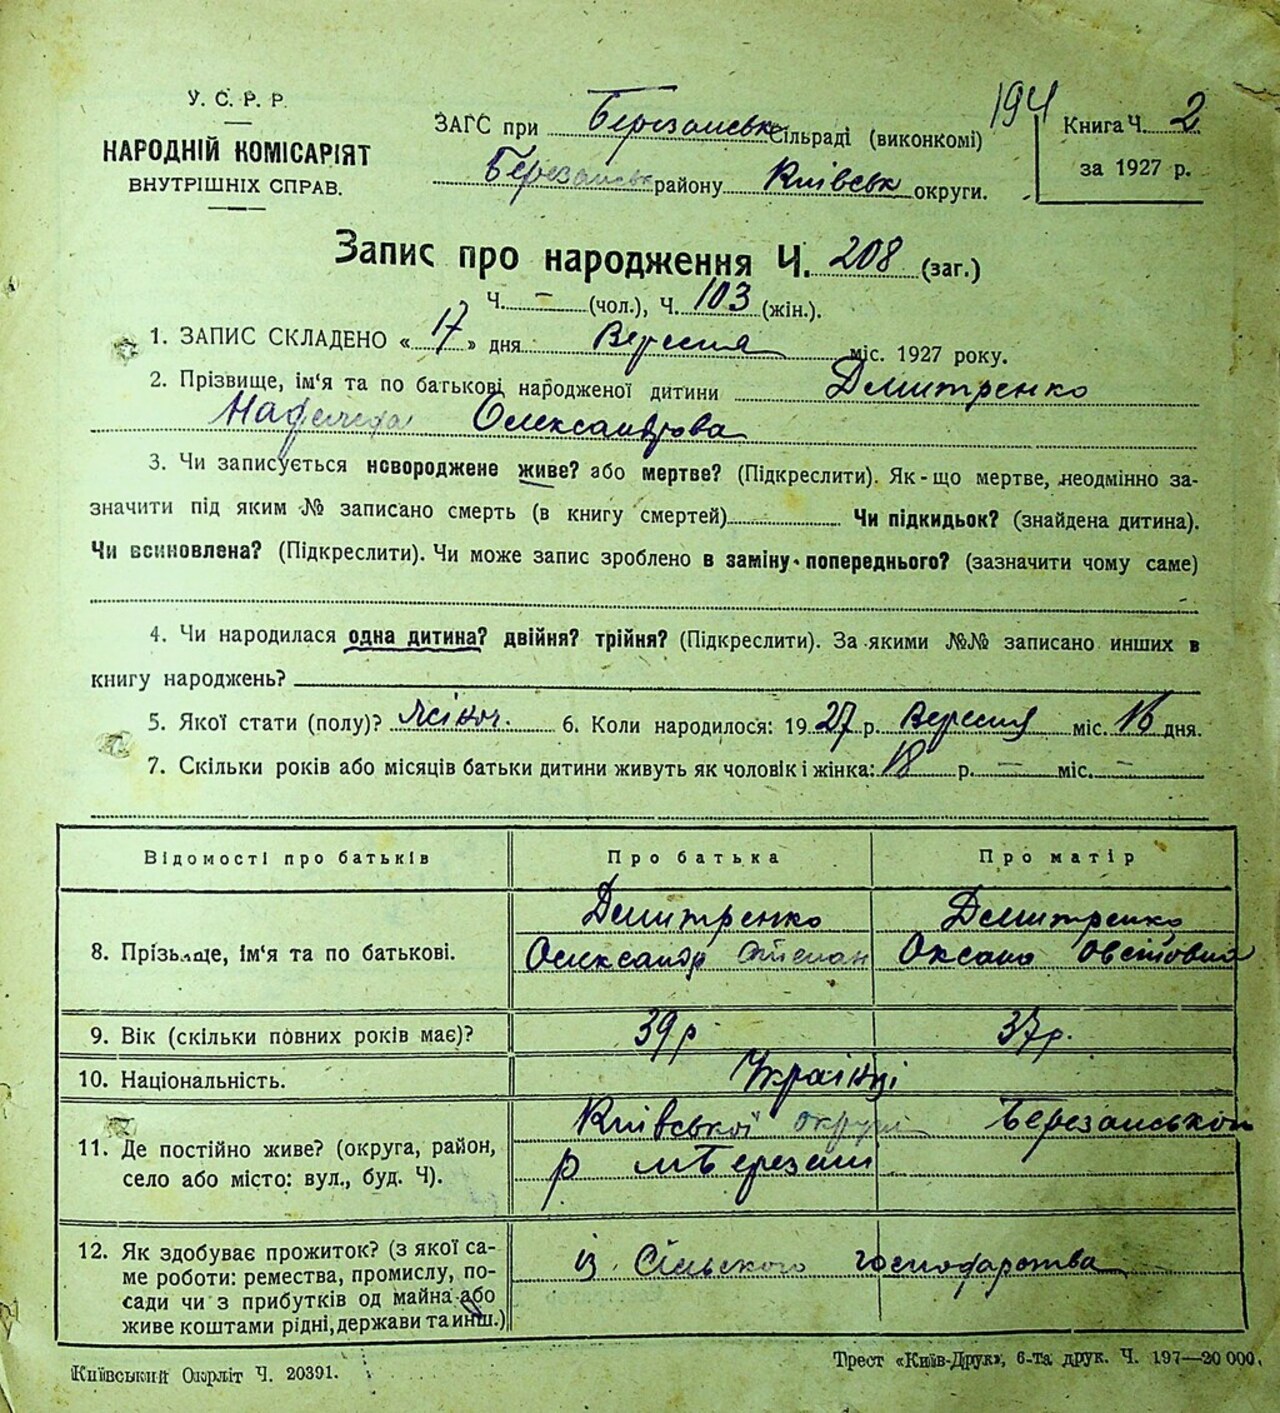 У. С. Р. Р.
НАРОДНІЙ КОМІСАРІЯТ
ВНУТРІШНІХ СПРАВ.
ЗАГС при Березанськ сільраді (виконкомі)
Березанськ району Київськ округи.
194
Книга Ч. 2
за 1927 р.
Запис про народження Ч. 208 (заг.)
Ч. – (чол.), Ч. 103 (жін.).
1. ЗАПИС СКЛАДЕНО «17» дня Вересня міс. 1927 року.
2. Прізвище, ім'я та по батькові народженої дитини Дмитренко
Надежда Олександрова
3. Чи записується новороджене живе? або мертве? (Підкреслити). Як-що мертве, неодмінно за-
значити під яким № записано смерть (в книгу смертей) Чи підкидьок? (знайдена дитина).
Чи всиновлена? (Підкреслити). Чи може запис зроблено в заміну попереднього? (зазначити чому саме)
4. Чи народилася одна дитина? двійня? трійня? (Підкреслити). За якими №№ записано инших в
книгу народжень?
5. Якої стати (полу)? жіноч. 6. Коли народилося: 1927 р. Вересня міс. 16 дня.
7. Скільки років або місяців батьки дитини живуть як чоловік і жінка: 18 р. – міс. –
Відомості про батьків Про батька Про матір
8. Прізвище, ім'я та по батькові.
Дмитренко Дмитренко
Олександр Степан Оксана Овстовна
9. Вік (скільки повних років має)? 39 р 37 р.
10. Національність. Українці
11. Де постійно живе? (округа, район,
село або місто: вул., буд. Ч).
Київської округи Березанськой
р м Березані
12. Як здобуває прожиток? (з якої са-
ме роботи: ремества, промислу, по-
сади чи з прибутків од майна або
живе коштами рідні, держави та инш.)
із Сільського господарства
Київський Окрліт Ч. 20391.
Трест «Київ-Друк», 6-та друк. Ч. 197—20 000.